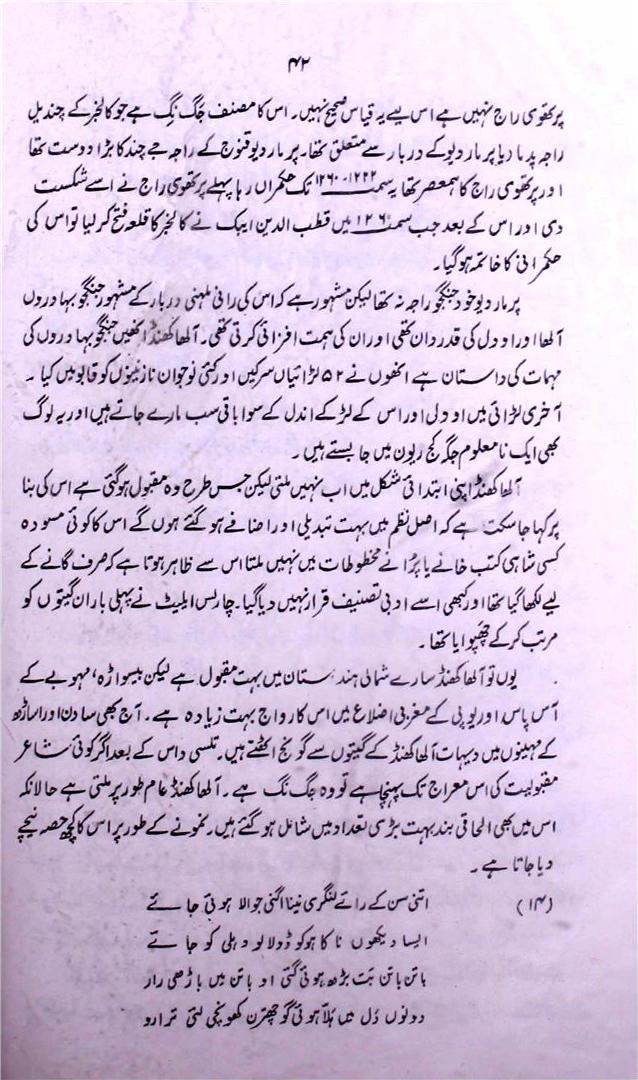 ۴۲
پرتھوی راج نہیں ہے اس لیے یہ قیاس صحیح نہیں۔ اس کا مصنف جگ نگ ہے جو کالنجر کے چندیل
راجہ پدما دیا پرمار دیو کے دربار سے متعلق تھا۔ پرمار دیو قنوج کے راجہ جے چند کا بڑا دوست تھا
اور پرتھوی راج کا ہمعصر تھا یہ سمت ۱۲۲۲-۱۲۶۰ تک حکمراں رہا پہلے پرتھوی راج نے اسے شکست
دی اور اس کے بعد جب سمت ۱۲۶۰ میں قطب الدین ایبک نے کالنجر کا قلعہ فتح کر لیا تو اس کی
حکمرانی کا خاتمہ ہو گیا۔
پرمار دیو خود جنگجو راجہ نہ تھا لیکن مشہور ہے کہ اس کی رانی ملہنی دربار کے مشہور جنگجو بہادروں
آلھا اور اودل کی قدردان تھی اور ان کی ہمت افزائی کرتی تھی۔ آلھا کھنڈ انھیں جنگجو بہادروں کی
مہمات کی داستان ہے انھوں نے ۵۲ لڑائیاں سر کیں اور کئی نوجوان نازنینوں کو قابو میں کیا۔
آخری لڑائی میں اودلی اور اس کے لڑکے اندل کے سوا باقی سب مارے جاتے ہیں اور یہ لوگ
بھی ایک نامعلوم جگہ کج ریون میں جا بستے ہیں۔
آلھا کھنڈ اپنی ابتدائی شکل میں اب نہیں ملتی لیکن جس طرح وہ مقبول ہو گئی ہے اس کی بنا
پر کہا جا سکتا ہے کہ اصل نظم میں بہت تبدیلی اور اضافے ہو گئے ہوں گے اس کا کوئی مسودہ
کسی شاہی کتب خانے یا پرانے مخطوطات میں نہیں ملتا اس سے ظاہر ہوتا ہے کہ صرف گانے کے
لیے لکھا گیا تھا اور کبھی اسے ادبی تصنیف قرار نہیں دیا گیا۔ چارلس ایلیٹ نے پہلی بار ان گیتوں کو
مرتب کر کے چھپوایا تھا۔
یوں تو آلھا کھنڈ سارے شمالی ہندستان میں بہت مقبول ہے لیکن بیسواڑہ، مہوبے کے
آس پاس اور یوپی کے مغربی اضلاع میں اس کا رواج بہت زیادہ ہے۔ آج بھی ساون اور اساڑھ
کے مہینوں میں دیہات آلھا کھنڈ کے گیتوں سے گونج اٹھتے ہیں۔ تلسی داس کے بعد اگر کوئی شاعر
مقبولیت کی اس معراج تک پہنچا ہے تو وہ جگ نگ ہے۔ آلھا کھنڈ عام طور پر ملتی ہے حالانکہ
اس میں بھی الحاقی بند بہت بڑی تعداد میں شامل ہو گئے ہیں۔ نمونے کے طور پر اس کا کچھ حصہ نیچے
دیا جاتا ہے۔
(۱۴) اتنی سن کے رائے لنگری نینا اگنی جوالا ہوئی جائے
ایسا دیکھوں ناکاہو کو ڈولا لو دہلی کو جائے
باتن باتن بت بڑھ ہوئی گئی او باتن میں باڑھی رار
دونوں دل میں ہلّا ہوئی گو چھترن کھونچی لئی ترارو